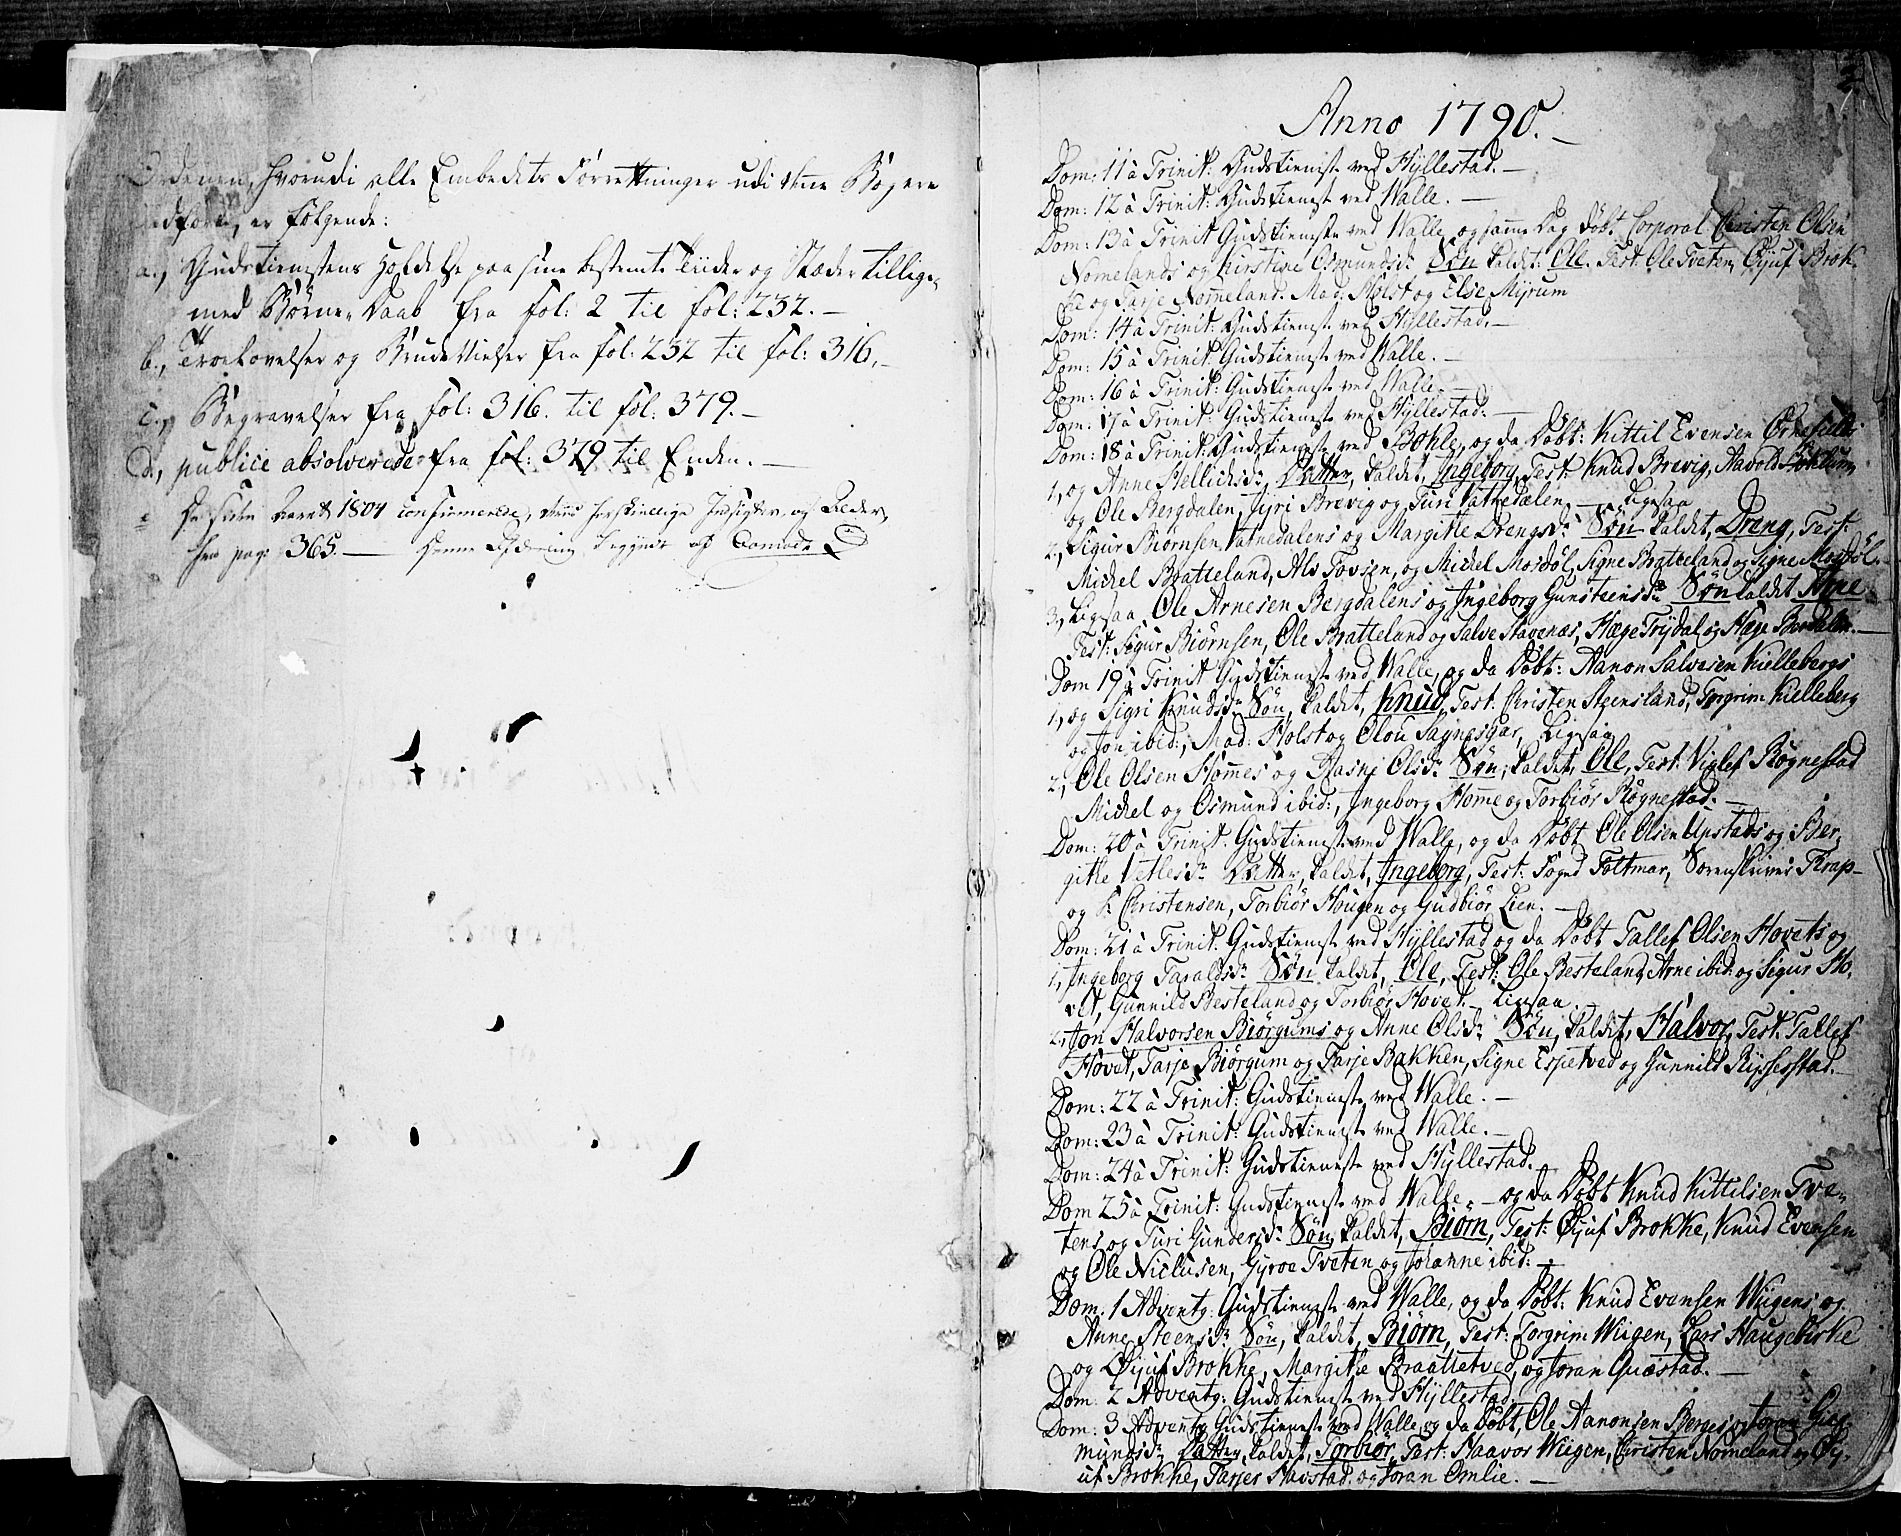 Ordenen, hvorudi alle Embedets Forretninger udi denne Bog ere
indførte, er følgende:
a., Gudstienestens Holdelse paa sine bestemte Tiider og Stæder tillige
med Børne-Daab fra fol: 2 til fol: 232. -
b., Troelovelser og Brudevielser fra fol: 232 til fol: 316. -
c., Begravelser fra fol: 316. til fol: 379. -
d., publice absolverede fra fol: 379 til Enden. -
e De siden Aaret 1804 confirmerede, deres forskiellige Indsigter og Alder,
fra pag: 365. - denne Afdeeling begyndt af Aamodt
2
Anno 1790. -
Dom: 11 à Trinit: Gudstieneste ved Hyllestad. -
Dom: 12 à Trinit: Gudstieneste ved Walle. -
Dom: 13 à Trinit Gudstieneste ved Walle og samme Dag døbt Corporal Christen Olsen
Nomelands og Kirstine Osmundsdr Søn kaldet: Ole. Test: Ole Tveten, Øjuf Brok-
ke og Tarje Nomeland. Mad: Holst og Else Myrum
Dom: 14 à Trinit: Gudstieneste ved Hyllestad. -
Dom: 15 à Trinit. Gudstieneste ved Walle. -
Dom: 16 à Trinit: Gudstieneste ved Walle. -
Dom: 17 à Trinit: Gudstieneste ved Hyllestad. -
Dom: 18 à Trinit: Gudstieneste ved Bøkle, og da Døbt: Kittil Evensen
1, og Anne Kellichsdr Datter, kaldet, Ingeborg, Test: Knud Brevig, Aavold
og Ole Bergdalen, Gyri Brevig og Turi Vatnedalen - Ligesaa
2, Sigur Biørnsen Vatnedalens og Margithe Drengsdr Søn kaldet, Dreng, Test:
Michel Bratteland, Alf Tovsen, og Michel Mosdøl, Signe Bratteland og Signe Mosdøl. -
3, Ligesaa Ole Arnesen Bergdalens og Ingeborg Gunsteensdr Søn kaldet Arne
Test: Sigur Biørnsen, Ole Bratteland og Salve Stavenæs, Hæge Trydal og Hæge Berdalen. -
Dom 19 à Trinit Gudstieneste ved Walle, og da Døbt: Aanon Salvesen Kiellebergs
1, og Sigri Knudsdr Søn, kaldet, Knud, Test. Christen Steensland, Torgrim Kielleberg
og Jon ibid:, Mad: Holst og Olou Sagnesgar, Ligesaa
2, Ole Olsen Homes og Dasni Olsdr Søn, kaldet, Ole, Test: Viglef Rognestad
Michel og Osmund ibid:, Ingeborg Home og Torbiør Rognestad. -
Dom: 20 à Trinit. Gudstieneste ved Walle, og da Døbt Ole Olsen Upstads og Ber-
githe Vetlesdr Datter, kaldet, Ingeborg, Test: Foged Foltmar, Sorenskriver Thrap-
og S. Christensen, Torbiør Hougen og Gudbiør Lien. -
Dom: 21 à Trinit. Gudstieneste ved Hyllestad og da Døbt Tallef Olsen Hovets og
1, Ingeborg Taraldsdr Søn kaldet, Ole, Test: Ole Besteland, Arne ibid: og Sigur Ho-
vet, Gunnild Besteland og Torbiør Hovet. - Ligesaa
2, Jon Halvorsen Biørgums og Anne Olsdr Søn, kaldet, Halvor, Test. Tallef
Hovet, Tarje Biørgum og Tarje Bakken, Signe Espetved og Gunnild Ryssestad. -
Dom: 22 à Trinit: Gudstieneste ved Walle. -
Dom: 23 à Trinit: Gudstieneste ved Walle. -
Dom: 24 à Trinit: Gudstieneste ved Hyllestad. -
Dom 25 à Trinit: Gudstieneste ved Walle. - og da Døbt Knud Kittilsen Tve-
tens og Turi Gundersdr Søn kaldet, Biørn, Test: Øjuf Brokke, Knud Evensen
og Ole Niclusen, Gyroe Tveten og Johanne ibid: -
Dom. 1 Adventg: Gudstieneste ved Walle, og da Døbt: Knud Evensen Wiigens og
Anne Steensdr Søn, kaldet, Biørn, Test: Torgrim Wiigen, Lars Haugebirke
og Øjuf Brokke, Margithe Braattetved, og Joran Quæstad. -
Dom: 2 Adventg: Gudstieneste ved Hyllestad.
Dom: 3 Adventg Gudstieneste ved Walle og da Døbt, Ole Aanonsen Berges og Joran
mundsdr Datter, kaldet, Torbiør, Test: Haavor Wiigen, Christen Nomeland og Øj-
uf Brokke, Tarjer Havstad, og Joran Omlie. -